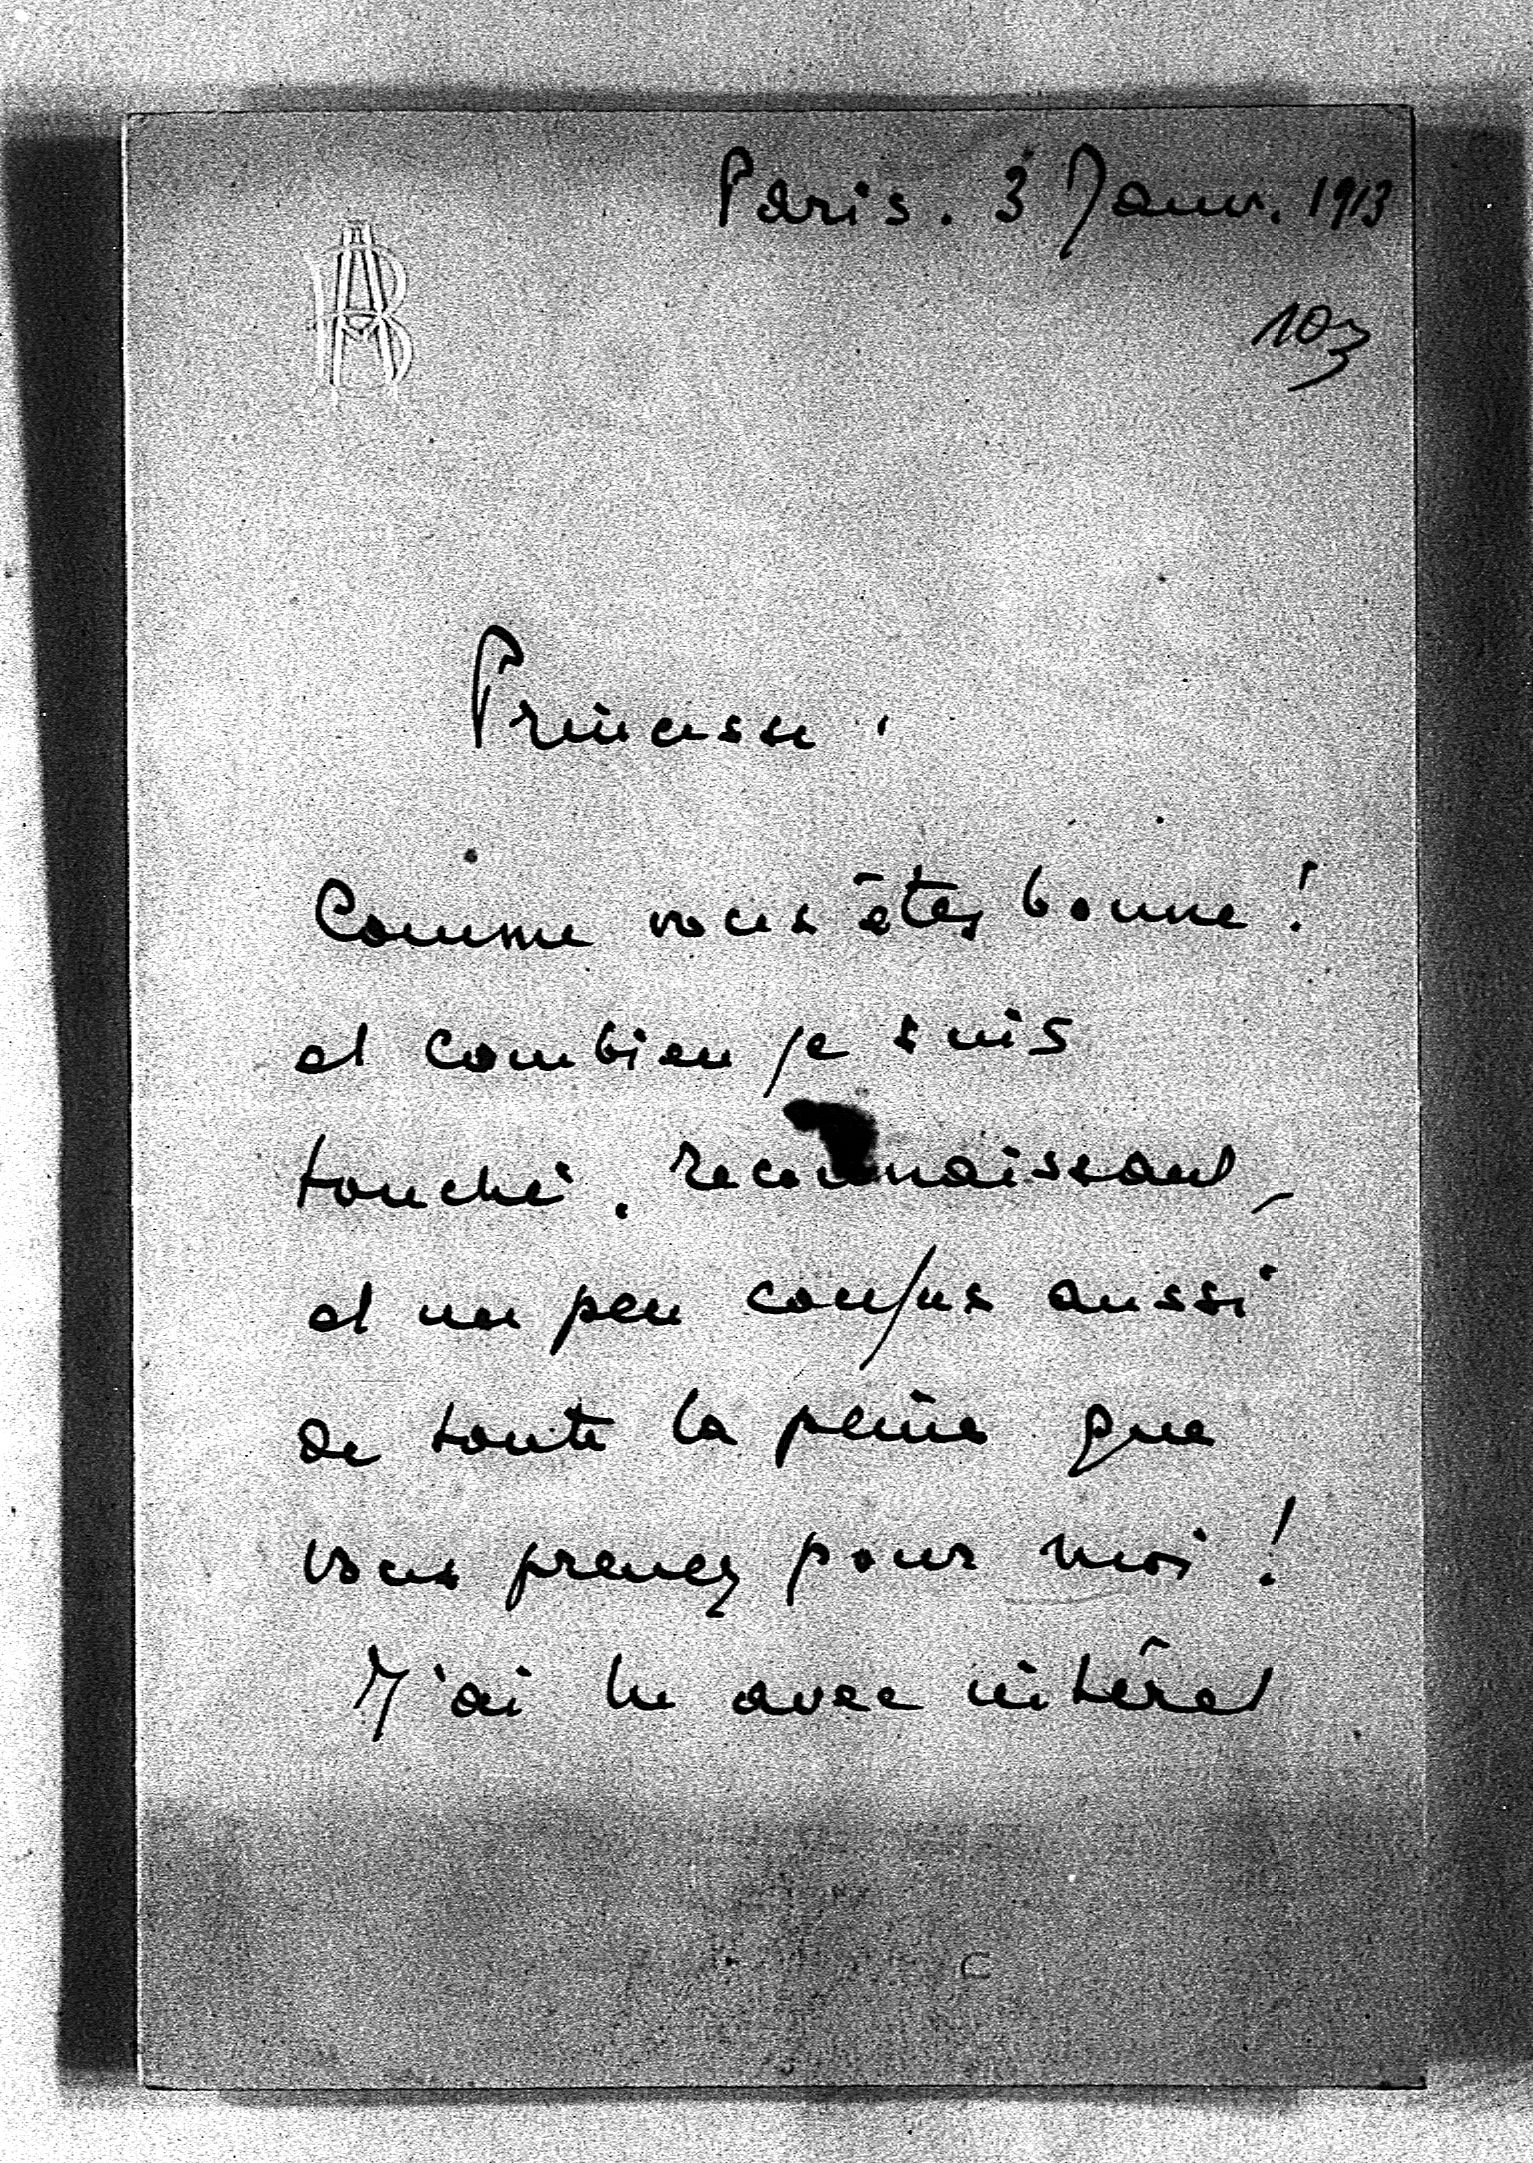 Paris. 3 Janv. 1913
AB
103
Princesse,
Comme vous êtes bonne !
et combien je suis
touché, reconnaissant,
et un peu confus aussi
de toute la peine que
vous prenez pour moi !
J'ai lu avec intérêt